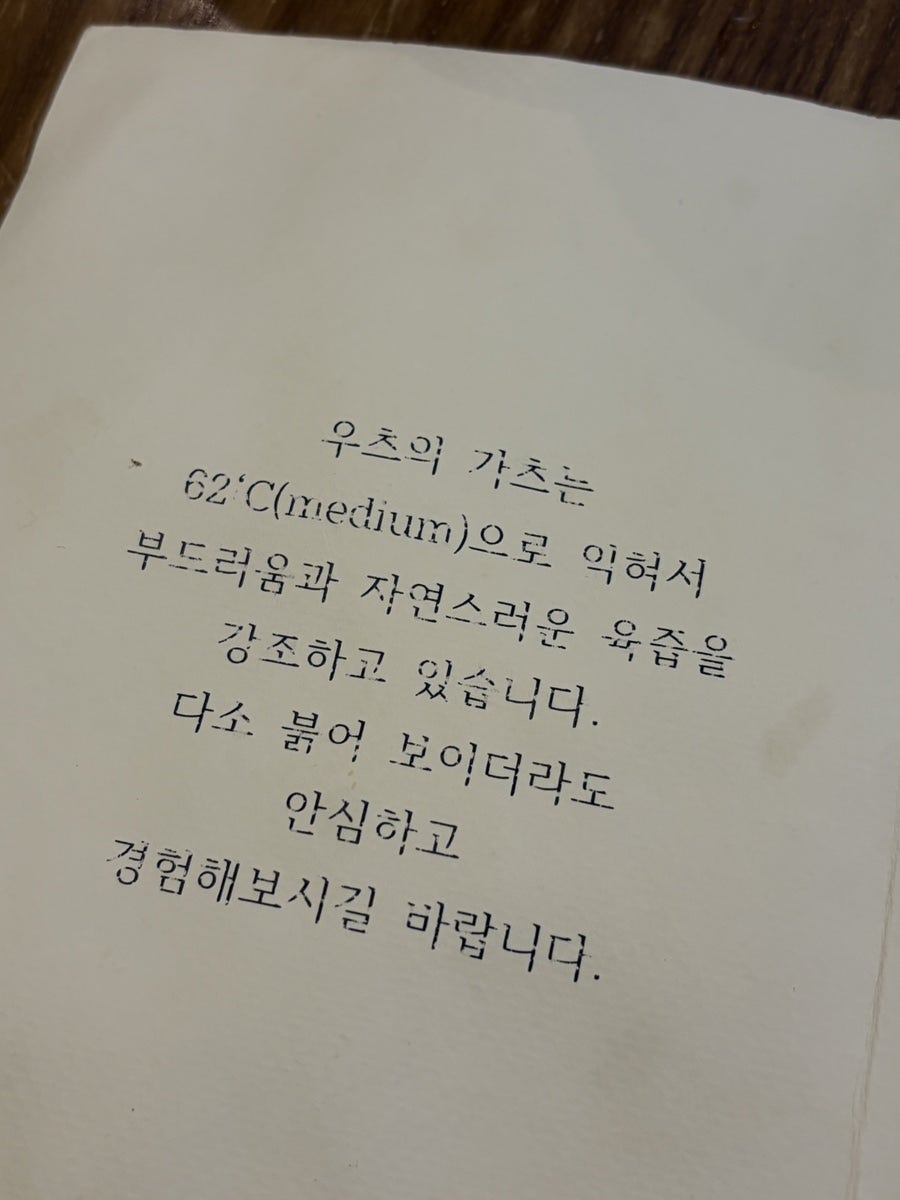 우츠의 가츠는
62°C(medium)으로 익혀서
부드러움과 자연스러운 육즙을
강조하고 있습니다.
다소 붉어 보이더라도
안심하고
경험해보시길 바랍니다.